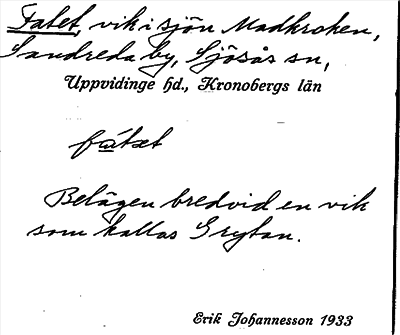 Fatet, vik i sjön Madkroken,
Sandreda by, Sjösås sn,
Uppvidinge hd., Kronobergs län
fátet
Belägen bredvid en vik
som kallas Grytan.
Erik Johannesson 1933